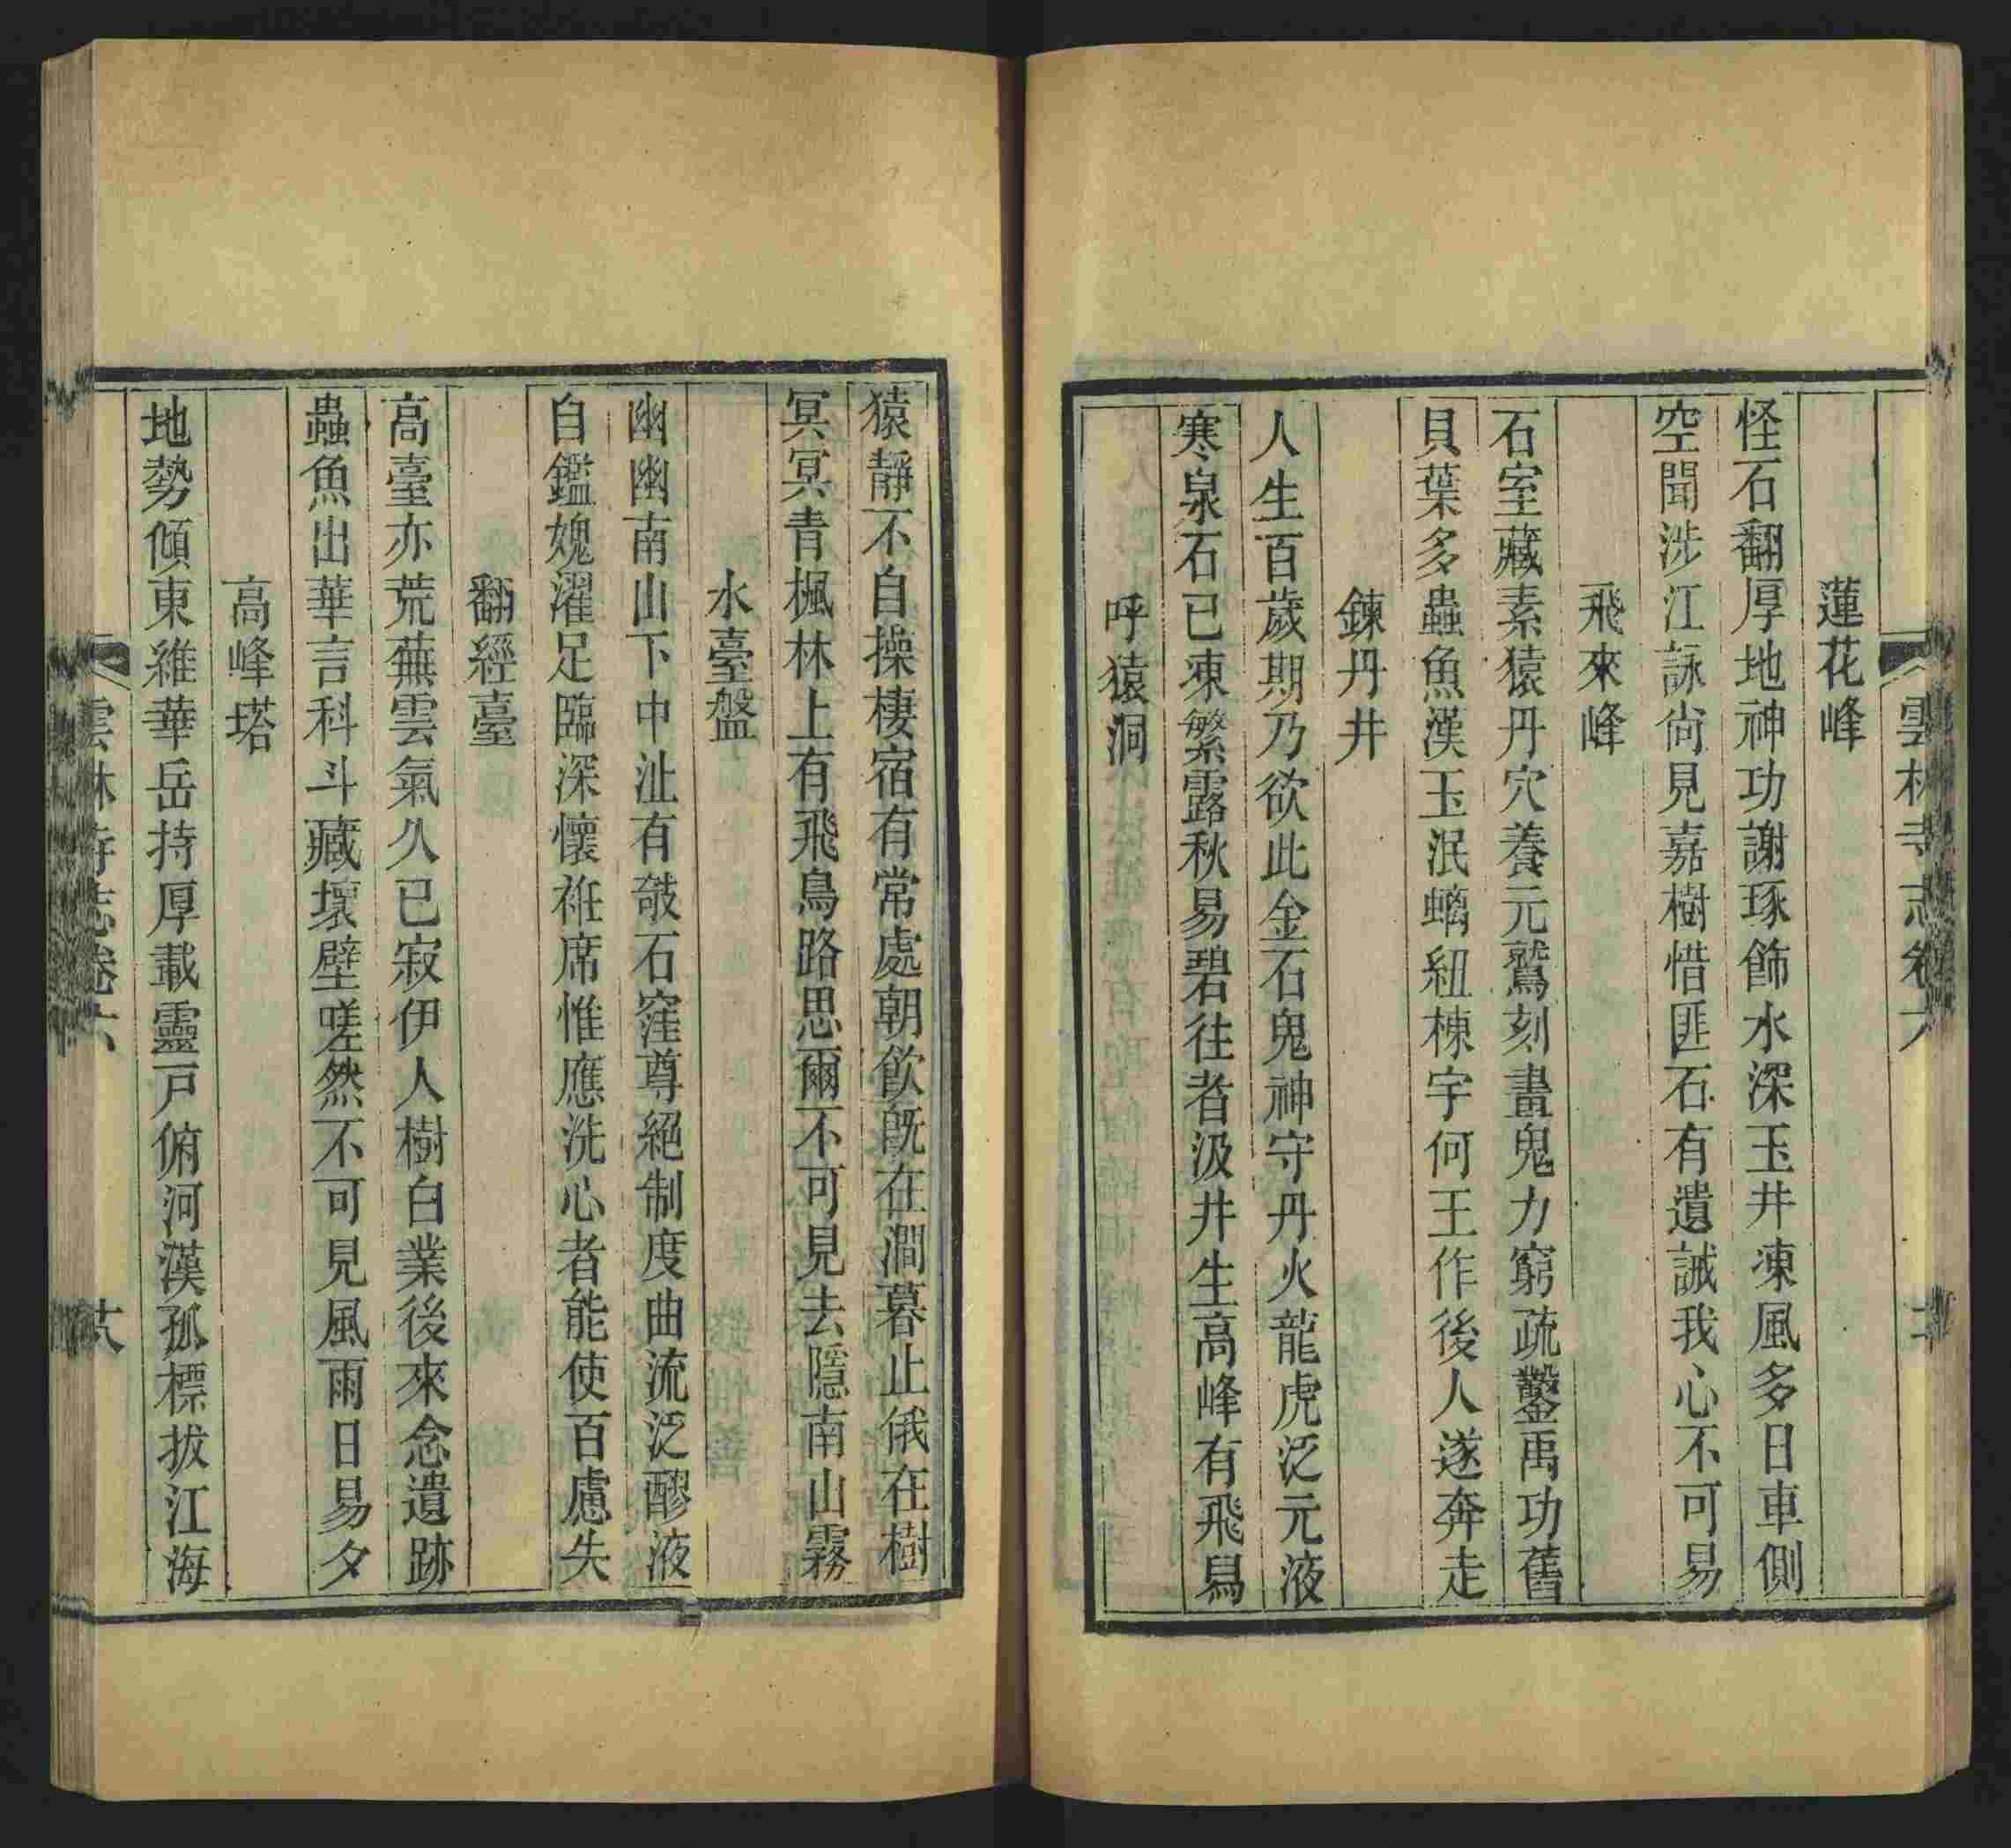 雲林寺志卷六
蓮花峰
怪石翻厚地神功謝琢飾水深玉井凍風多日車側
空聞涉江詠尙見嘉樹惜匪石有遺誠我心不可易
飛來峰
石室藏素猿丹穴養元鷲刻畫鬼力窮疏鑿禹功舊
貝葉多蟲魚漢玉泯螭紐棟宇何王作後人遂奔走
鍊丹井
人生百歲期乃欲此金石鬼神守丹火龍虎泛元液
寒泉石已凍繁露秋易碧往者汲井生高峰有飛舃
呼猿洞
猿靜不自操棲宿有常處朝飲旣在澗暮止俄在樹
冥冥青楓林上有飛鳥路思爾不可見去隱南山霧
水臺盤
幽幽南山下中沚有皷石窪尊絕制度曲流泛醪液
自鑑媿濯足臨深懷袵席惟應洗心者能使百慮失
翻經臺
高臺亦荒蕪雲氣久已寂伊人樹白業後來念遺跡
蟲魚出華言科斗藏壞壁嗟然不可見風雨日易夕
高峰塔
地勢傾東維華岳持厚載靈戸俯河漢孤標拔江海
雲林寺志卷六 廿八